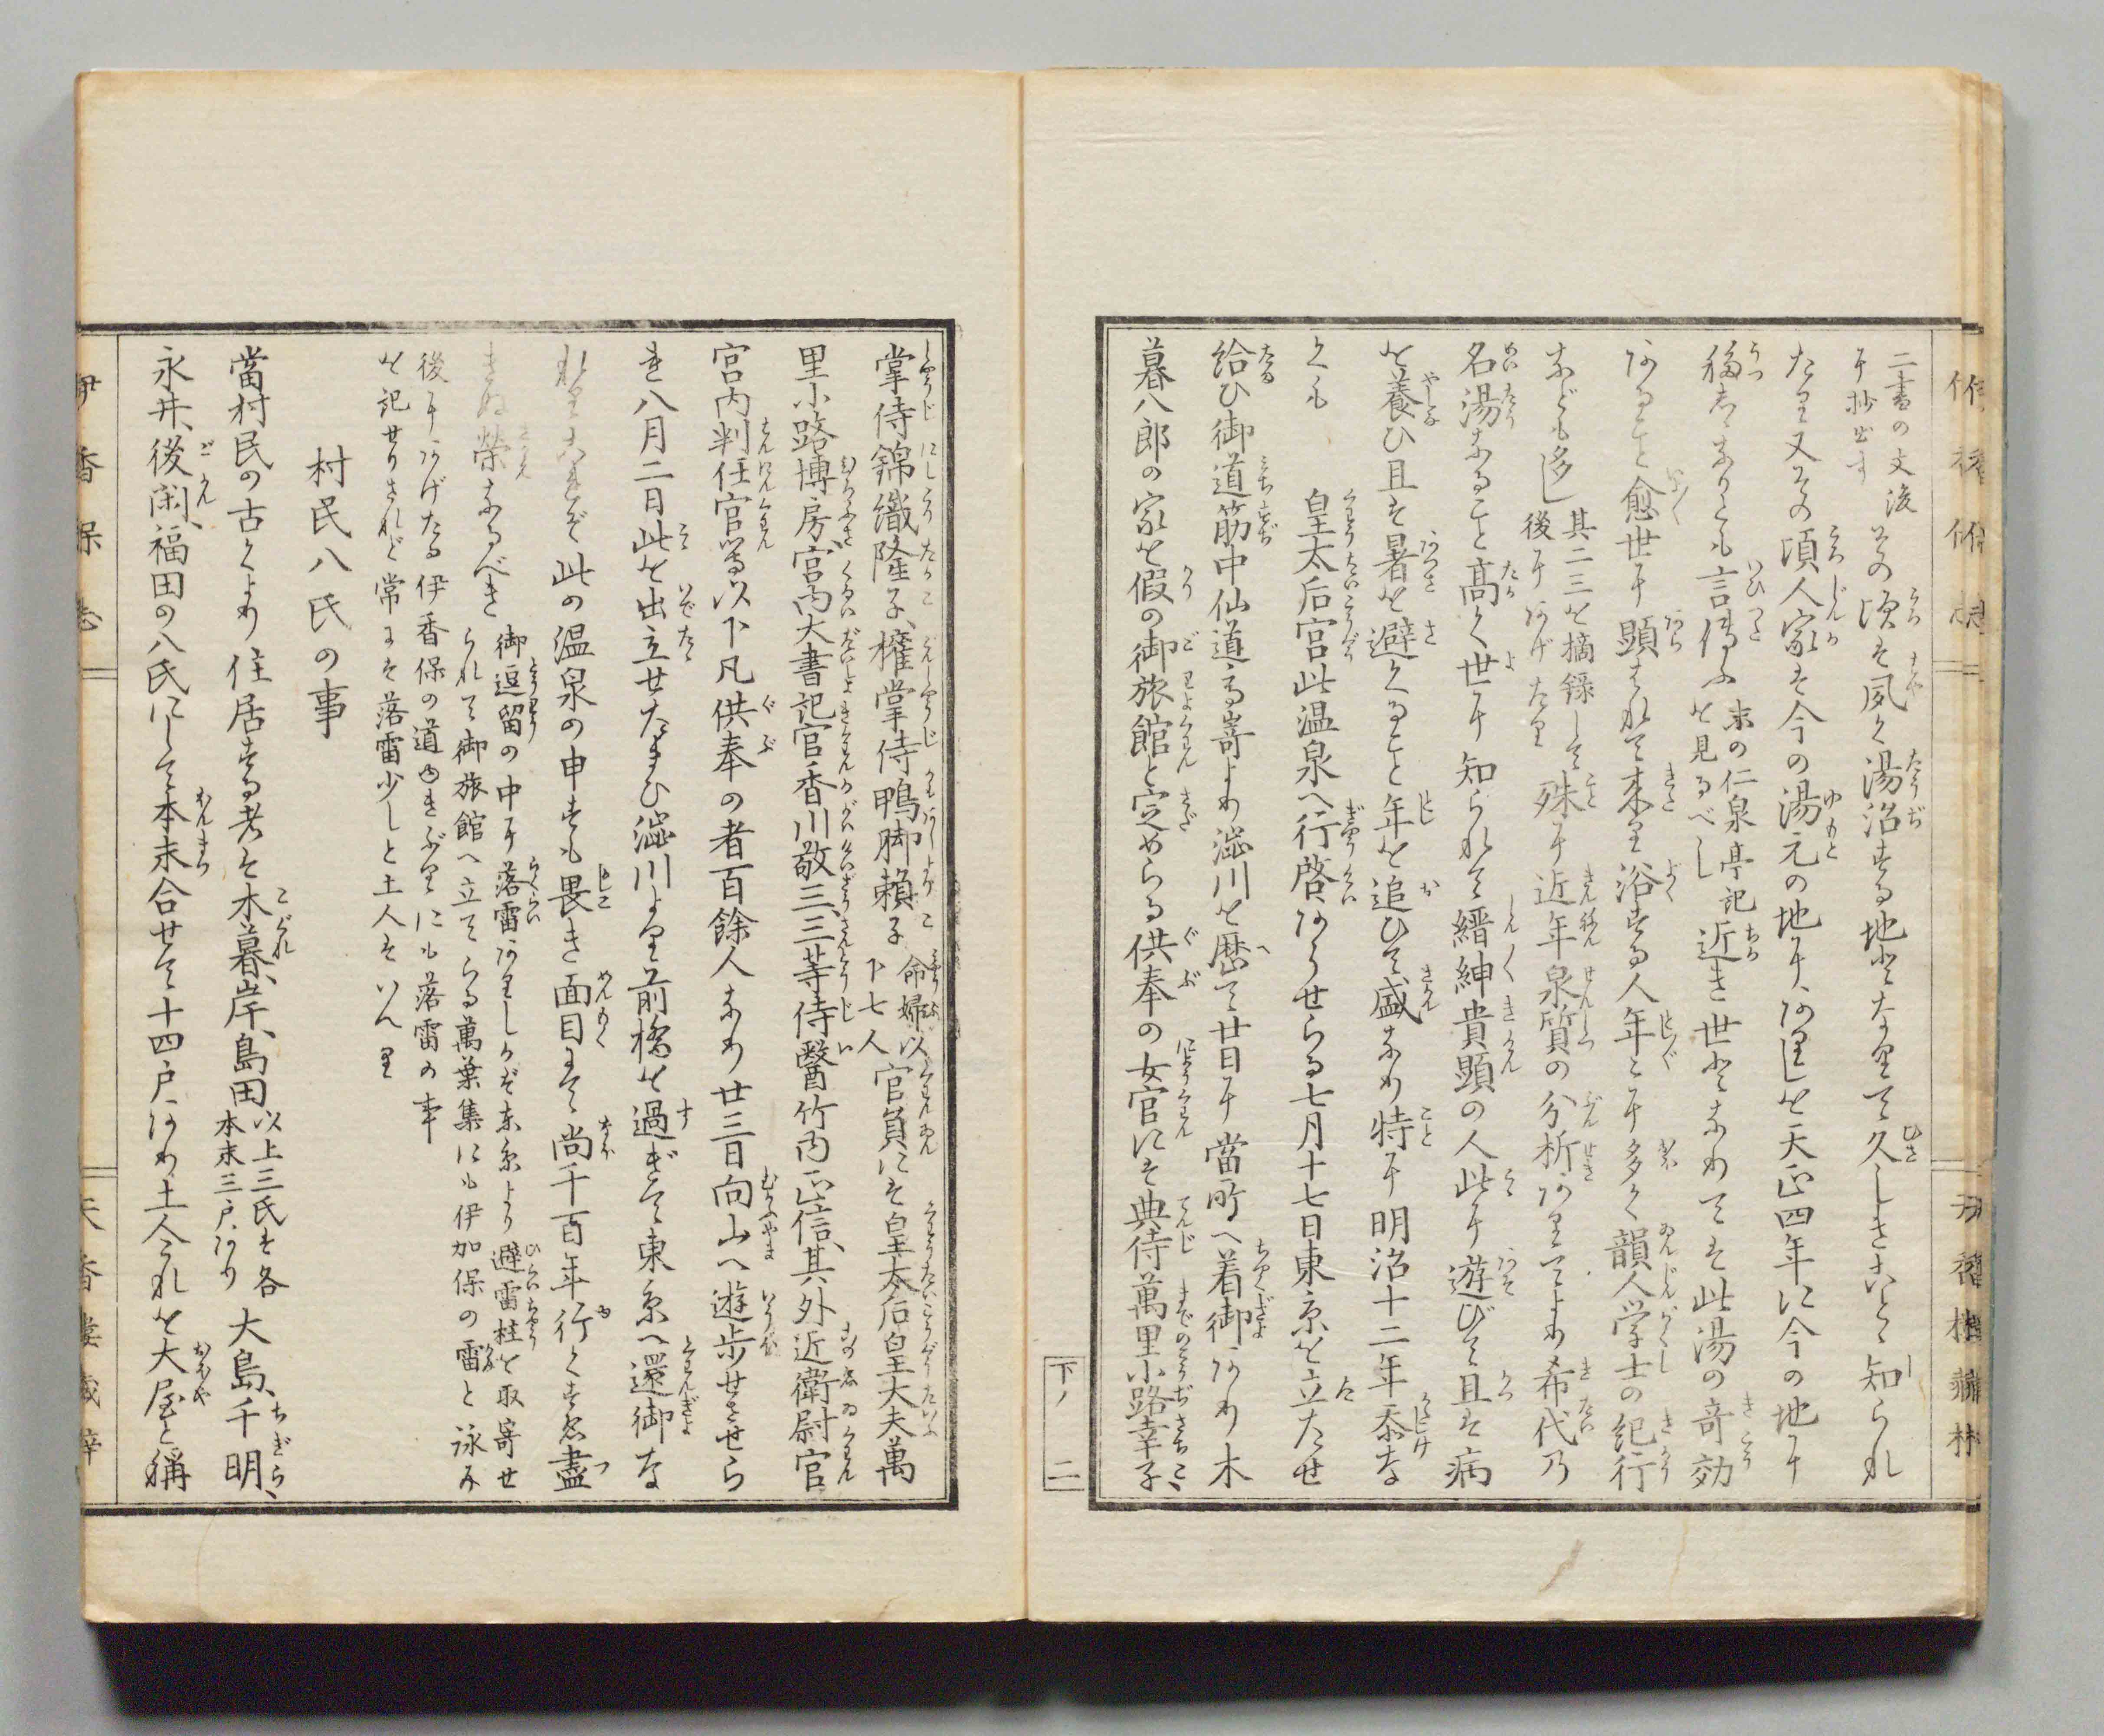 二書の文後
に抄出す
その頃は夙く湯治する地となりて久しきこと知られ
たり又その頃人家は今の湯元の地にありしを天正四年に今の地に
移しゝなりとも言傳ふ末の仁泉亭記を見るべし近き世となりては此湯の竒効
あること愈世に顕はれて来り浴する人年々に多く韻人学士の紀行
なども多し其二三を摘録して後にあげたり殊に近年泉質の分析ありてより希代乃
名湯なること高く世に知られて縉紳貴顕の人此に遊びて且は病
を養ひ且は暑を避くること年を追ひて盛なり特に明治十二年忝な
くも
皇太后宮此温泉へ行啓あらせらる七月十七日東京を立たせ
給ひ御道筋中仙道高嵜より澁川を歴て廿日に當所へ着御あり木
暮八郎の家を假の御旅館と定めらる供奉の女官には典侍萬里小路幸子、
下ノ二
掌侍錦織隆子、権掌侍鴨脚頼子命婦以下七人官員には皇太后皇大夫萬
里小路博房、宮内大書記官香川敬三、三等侍醫竹内正信、其外近衛尉官
宮内判任官等以下凡供奉の者百餘人なり廿三日向山へ遊歩せさせら
れ八月二日此を出立せたまひ澁川より前橋を過ぎて東京へ還御な
れりこれぞ此の温泉の申すも畏き面目にて尚千百年行くすゑ盡
きぬ榮なるべき御逗留の中に落雷ありしかば東京より避雷柱を取寄せ
られて御旅館へ立てらる萬葉集にも伊加保の雷と詠み
後にあげたる伊香保の道ゆきぶりにも落雷の事
を記せりされど常には落雷少しと土人はいへり
村民八氏の事
當村民の古くより住居する者は木暮、岸、島田以上三氏は各本末三戸あり大島、千明、
永井、後閑、福田の八氏にして本末合せて十四戸あり土人これを大屋と稱
伊香保志
天香樓蔵梓